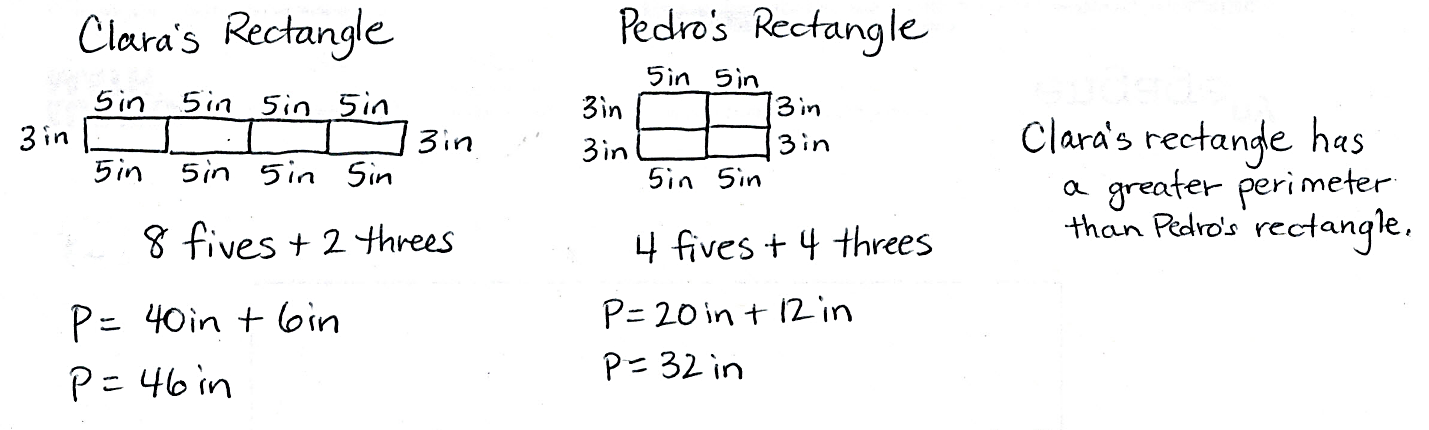 Clara's Rectangle
5in 5in 5in 5in
3in 3in
5in 5in 5in 5in
8 fives + 2 threes
P = 40in + 6in
P = 46in
Pedro's Rectangle
5in 5in
3in 3in
3in 3in
5in 5in
4 fives + 4 threes
P = 20in + 12in
P = 32in
Clara's rectangle has
a greater perimeter
than Pedro's rectangle.